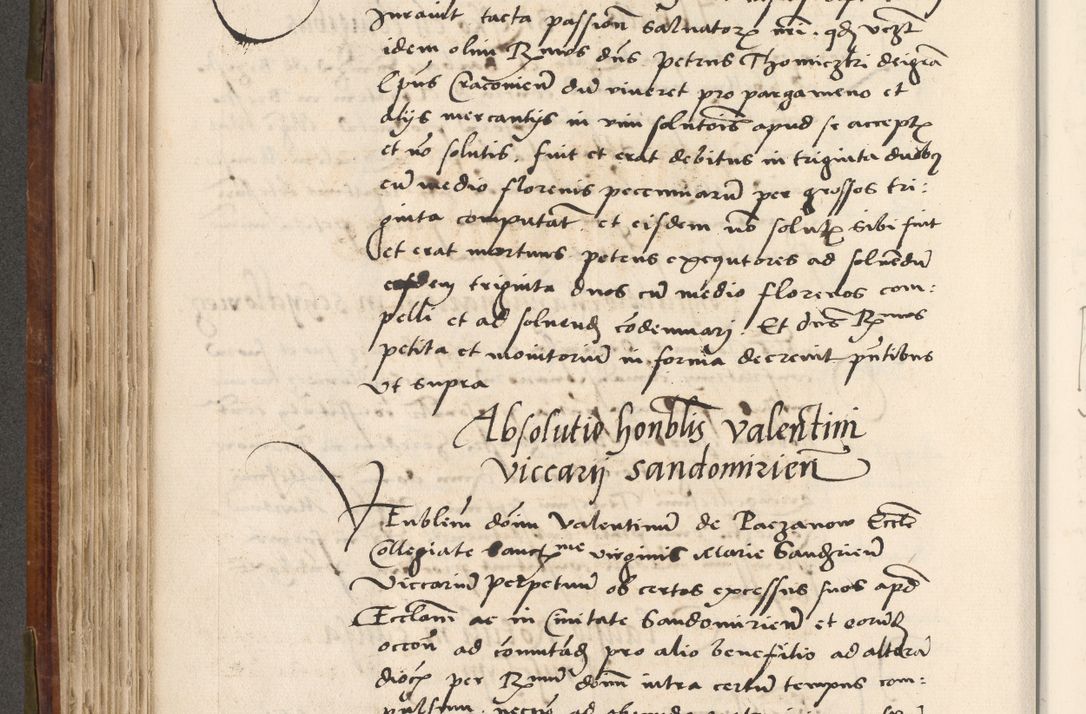 Iuravit tacta passion Salvatorꝝ nri. qđ vegt
idem olim Rmos dns petrus Thomiczki deigra
Epus Cracovien dū viveret pro pargameno et
alÿs mercantÿs in vim solutois apud se acceptꝝ
et nō solutis. fuit et erat debitus in triginta duobꝫ
cū medio florenis pecuniarū per grossos tri:
ginta computat. et eisdem nō solutꝝ sibi fuit
et erat mortuus. petens exequtores ad solvendū
eosdem triginta duos cū medio florenos com:
pelli et ad solvend cōdemnarj. Et dns Rmus
petita et monitoriū in forma decrevit pntibus
vt supra
Absolutio honblis Valentini
viccarij Sandomirien
Venblem dōm Valentinū de Paczanow Eccle
Collegiate Sanctme virginis Marie Sandzien
Viccariū perpetuū ob certos excessus suos apd
Ecclam ac in Civitate Sandomirien et eorūd
occon ad comutād pro alio benefitio ad alterā
diocꝭ per Rmū dōm intra certū tempus com:
pulsum.